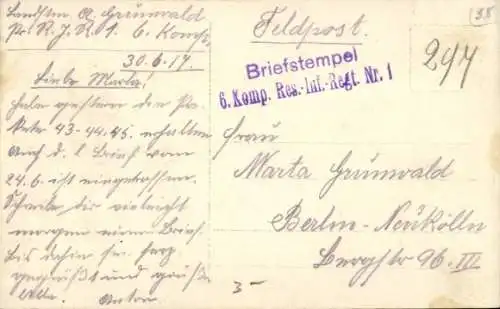 Landstm. A. Grunwald
Pr. R. J. R. 1. 6. Komp.
30.6.17.
Liebe Marta!
habe gestern die Pa-
kete 43-44.45. erhalten
Auch d. l. Brief vom
24.6. ist eingetroffen.
Schreibe dir vieleicht
morgen einen Brief.
Bis dahin sei herz
gegrüßt und grüße
Alle. Anton
Feldpost.
Briefstempel
6. Komp. Res.-Inf.-Regt. Nr. 1
38
294
Frau
Marta Grunwald
Berlin-Neukölln
Bergstr 96. III
3-